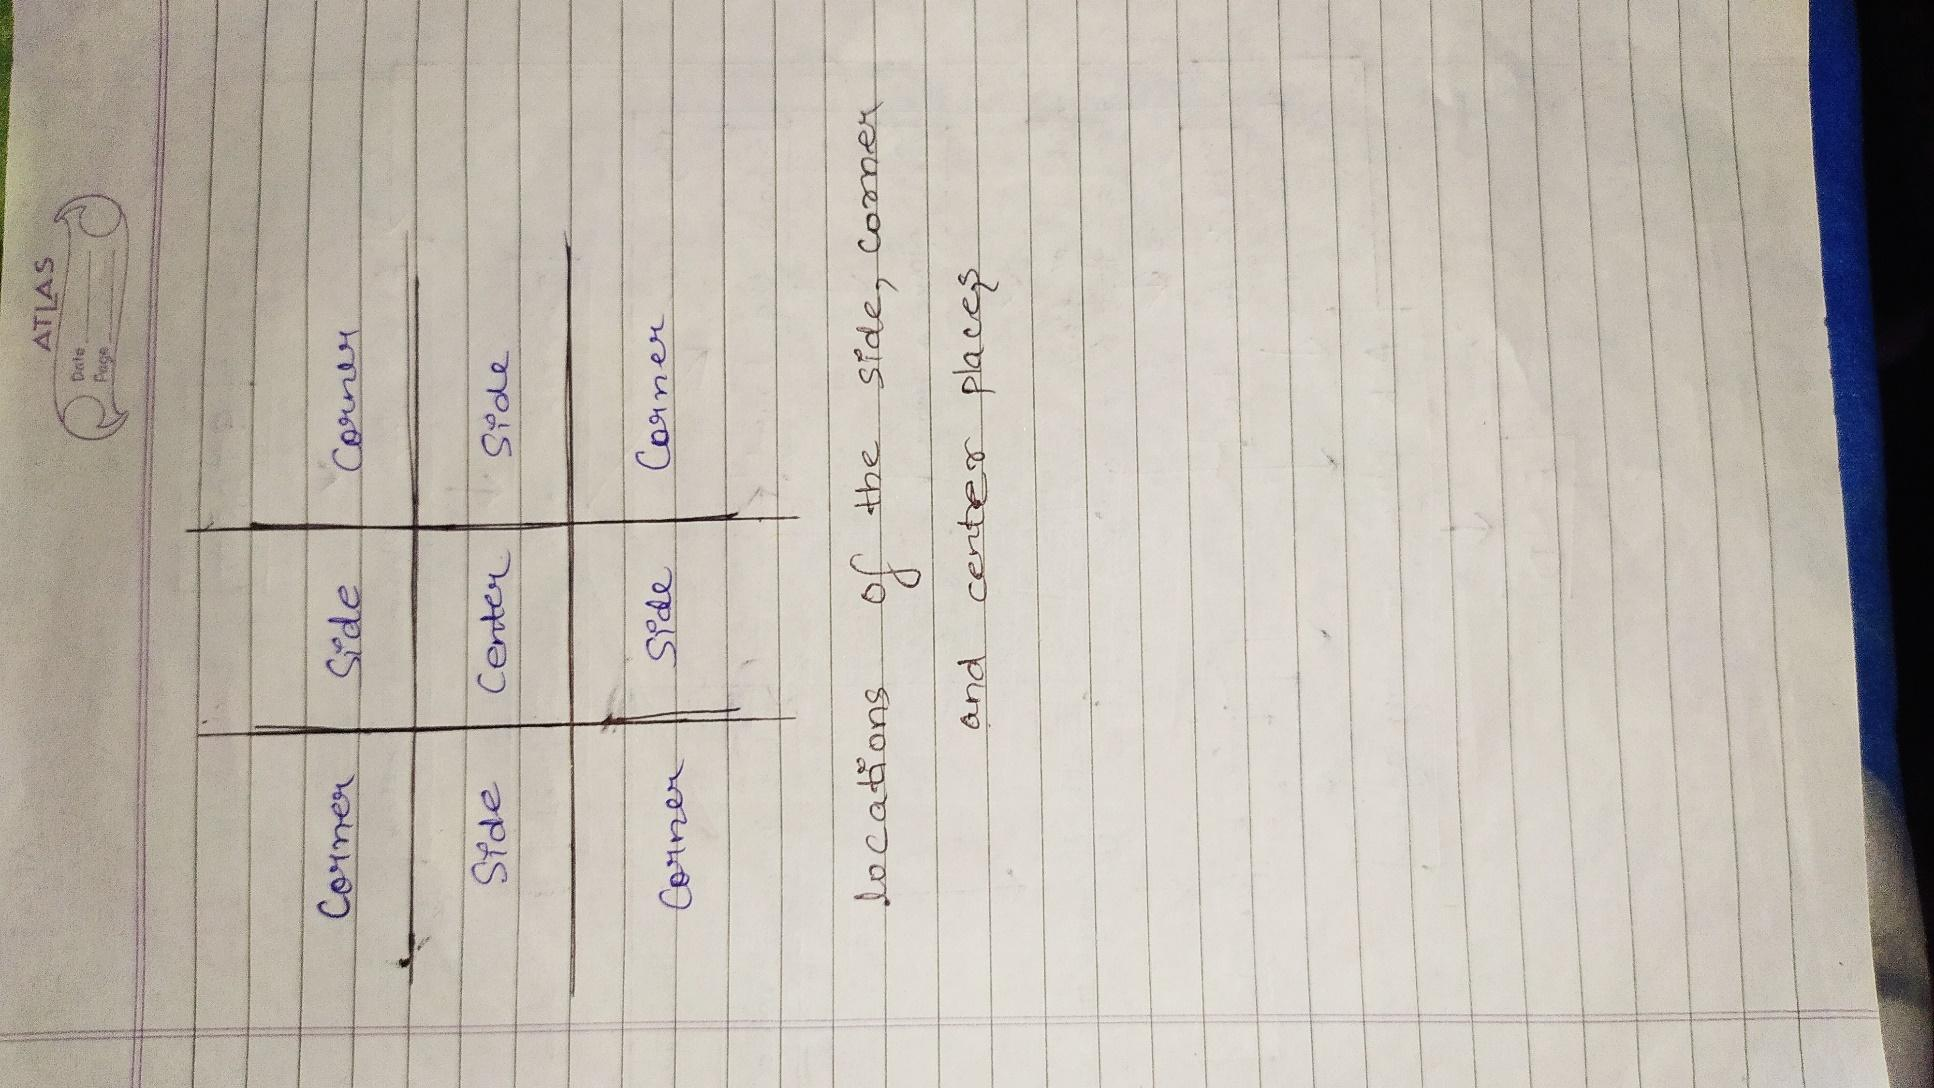 ATLAS
Date
Page
Corner Side Corner
Side Center Side
Corner Side Corner
locations of the side, corner
and center places